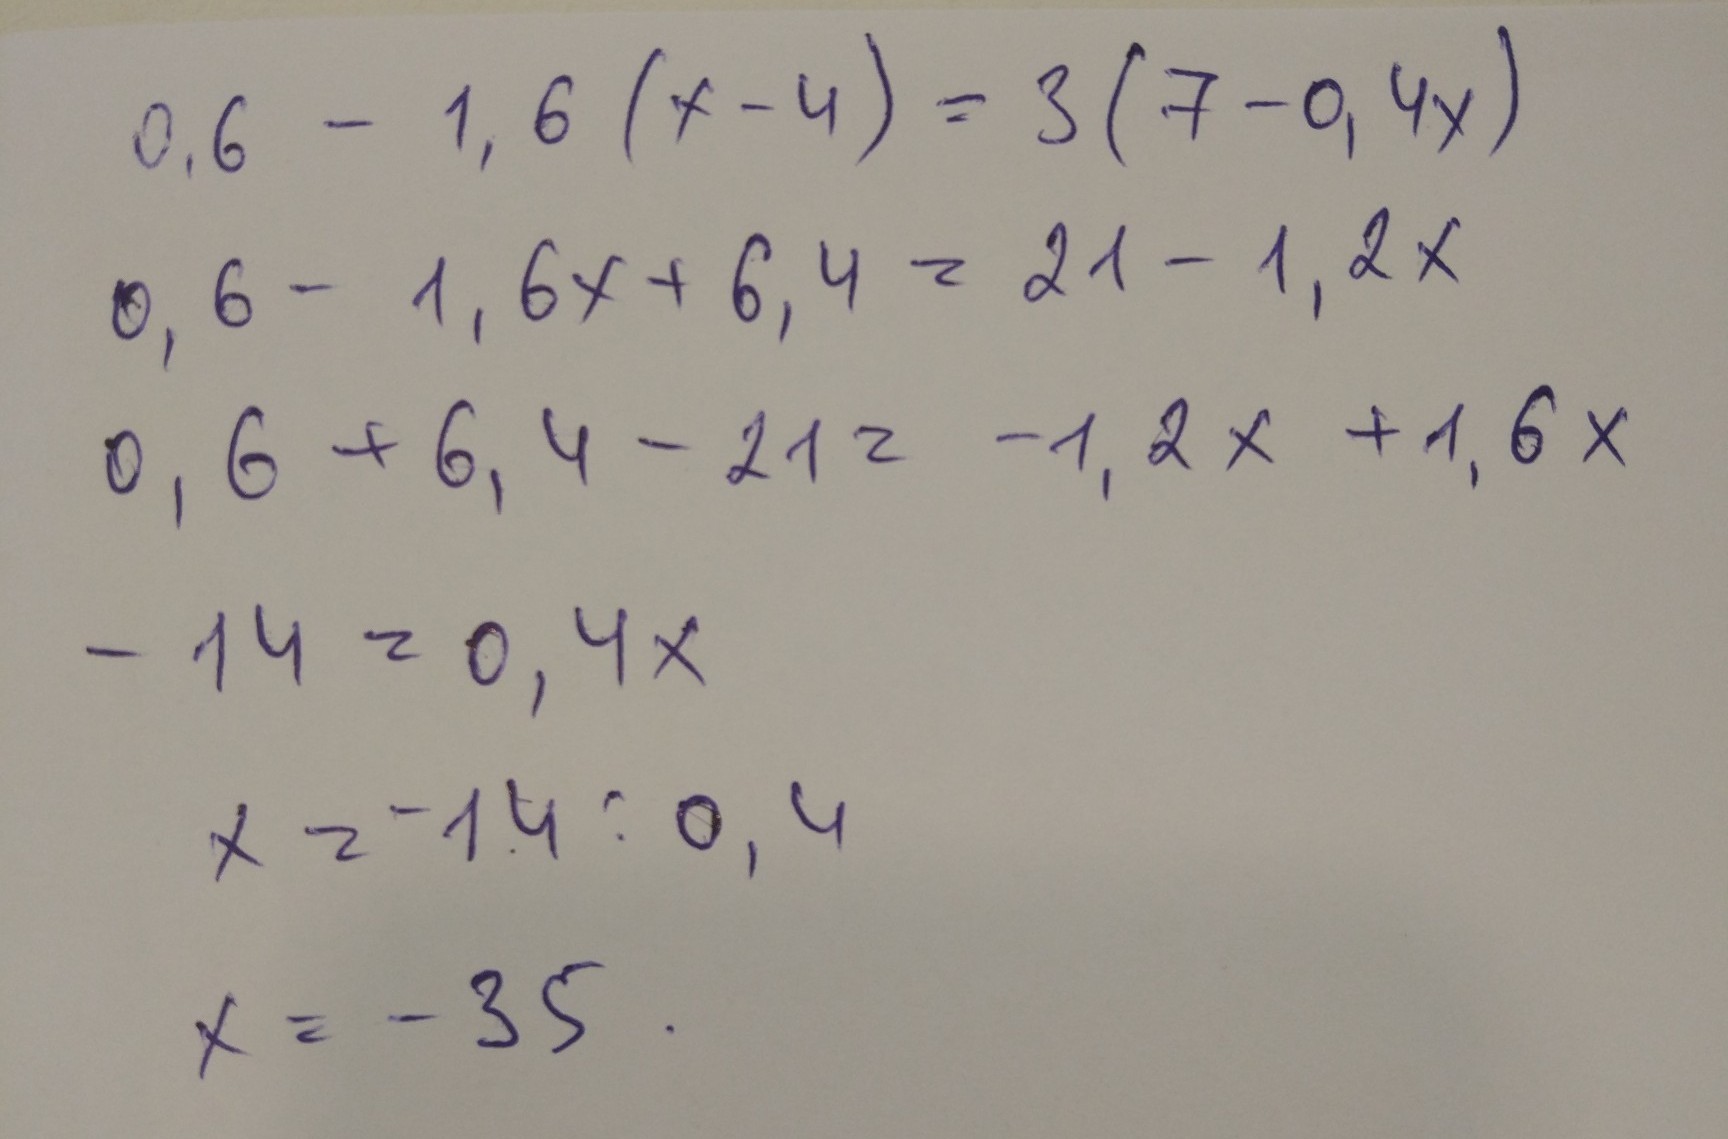 0,6 - 1,6 (x - 4) = 3 (7 - 0,4x)
0,6 - 1,6x + 6,4 = 21 - 1,2x
0,6 + 6,4 - 21 = -1,2x + 1,6x
- 14 = 0,4x
x = -14 : 0,4
x = - 35 .